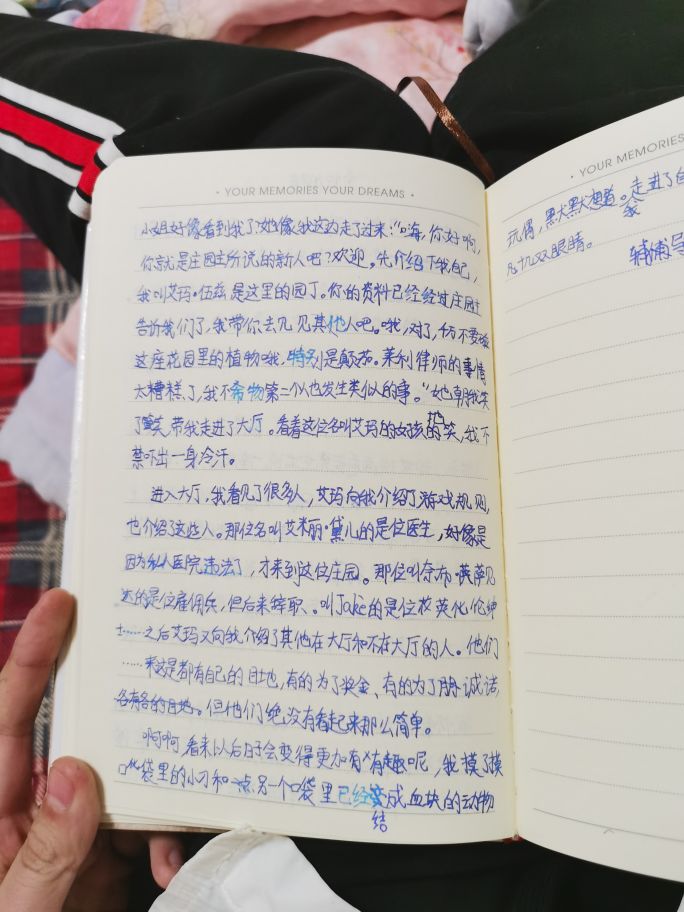 · YOUR MEMORIES YOUR DREAMS ·
小姐好像看到我了,她像我这边走了过来:"嗨,你好啊,
你就是庄园主所说的新人吧?欢迎。先介绍下我自己,
我叫艾玛·伍兹是这里的园丁。你的资料已经经过庄园主
告诉我们了,我带你去见见其他人吧。哦,对了,千万不要碰
这座花园里的植物哦,特别是颠茄。莱利律师的事情
太糟糕了,我不希物第二个人也发生类似的事。"她朝我笑
了笑,带我走进了大厅。看着这位名叫艾玛的女孩的笑,我不
禁吓出一身冷汗。
进入大厅,我看见了很多人,艾玛向我介绍了游戏规则,
也介绍了这些人。那位名叫艾米丽·黛儿的是位医生,好像是
因为私人医院违法了,才来到这位庄园。那位叫奈布·萨贝
达的是位雇佣兵,但后来辞职。叫Jake的是位 英 伦绅
士……之后艾玛又向我介绍了其他在大厅和不在大厅的人。他们
……来这是都有自己的目地,有的为了奖金、有的为了 诚诺,
各有各的目地。但他们绝没有看起来那么简单。
啊啊,看来以后日子会变得更加有 有趣呢,我摸了摸
口袋里的小刀和 另一个口袋里已经结成血块的动物
· YOUR MEMORIES
玩偶,默默 道。走进了
几双眼睛。